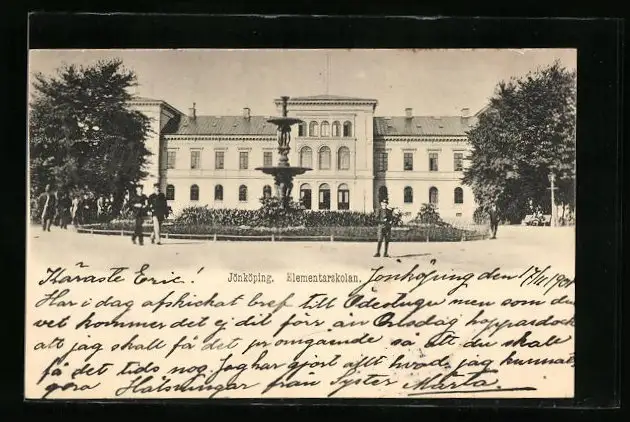 Jönköping. Elementarskolan.
Käraste Eric! Jönköping den 17/4 1901
Har i dag afskickat bref till men som du
vet kommer det ej dit förr än Onsdag hoppas dock
att jag skall få det pr omgående så att du skall
få det tids nog. Jag har gjort allt hvad jag kunnat
göra Hälsningar från Syster Märta.